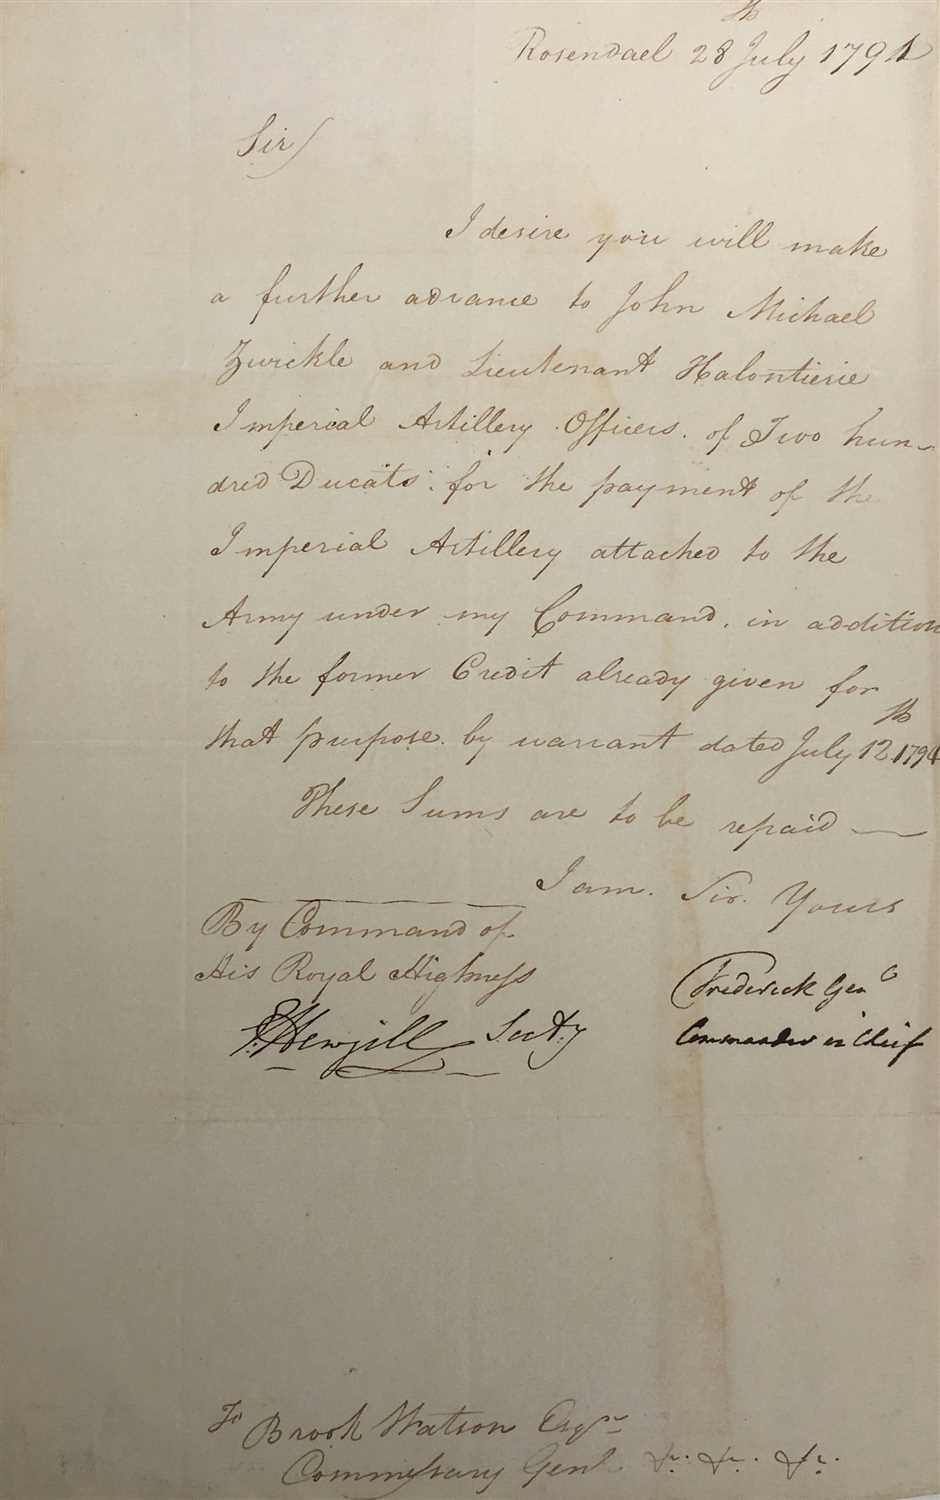 Rosendael 28th July 1794
Sir/
I desire you will make
a further advance to John Michael
Zwickle and Lieutenant Halontierie
Imperial Artillery Officers. of Two hun-
dred Ducats: for the payment of the
Imperial Artillery attached to the
Army under my Command. in addition
to the former Credit already given for
that purpose. by warrant dated July 12th 1794
These Sums are to be repaid —
I am. Sir. Yours
By Command of
His Royal Highness
Hewgill Secty
Frederick Genl
Commander in Chief
To Brook Watson Esqr
Commissary Genl &c. &c. &c.